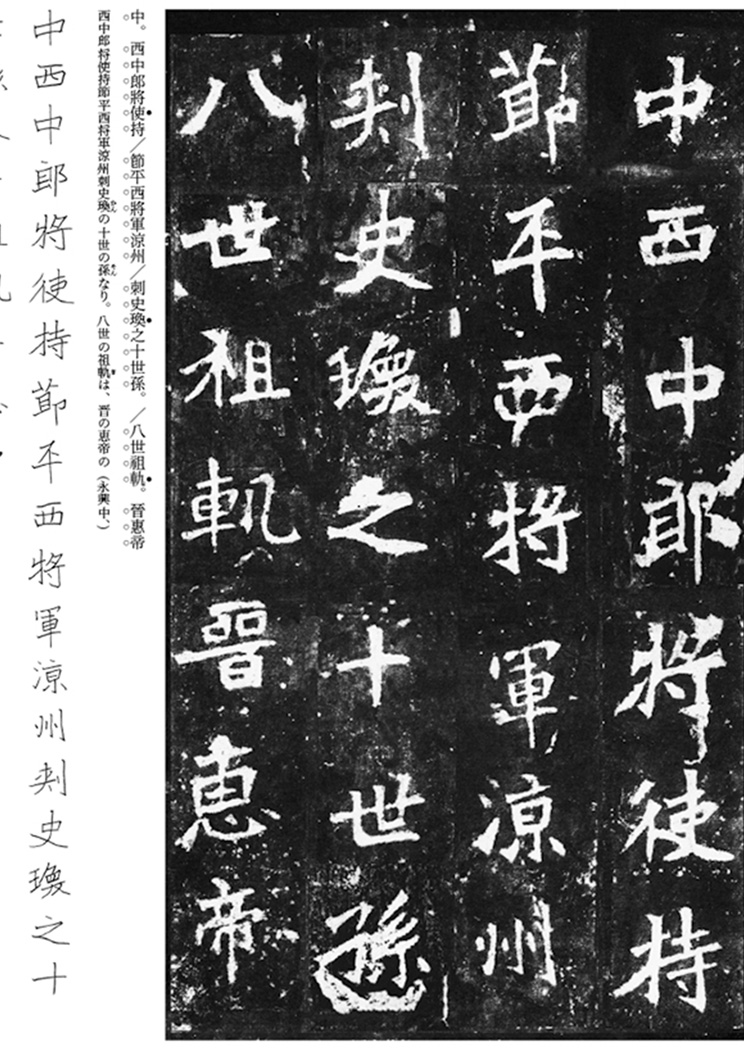 中西中郎將使持
節平西將軍涼州
刺史瑍之十世孫
八世祖軌晉惠帝
中。西中郎將使持／節平西將軍涼州／刺史瑍之十世孫。／八世祖軌。晉惠帝
西中郎将使持節平西将軍涼州刺史瑍の十世の孫なり。八世の祖軌は、晋の恵帝の（永興中、）
中西中郎將使持節平西將軍涼州刺史瑍之十